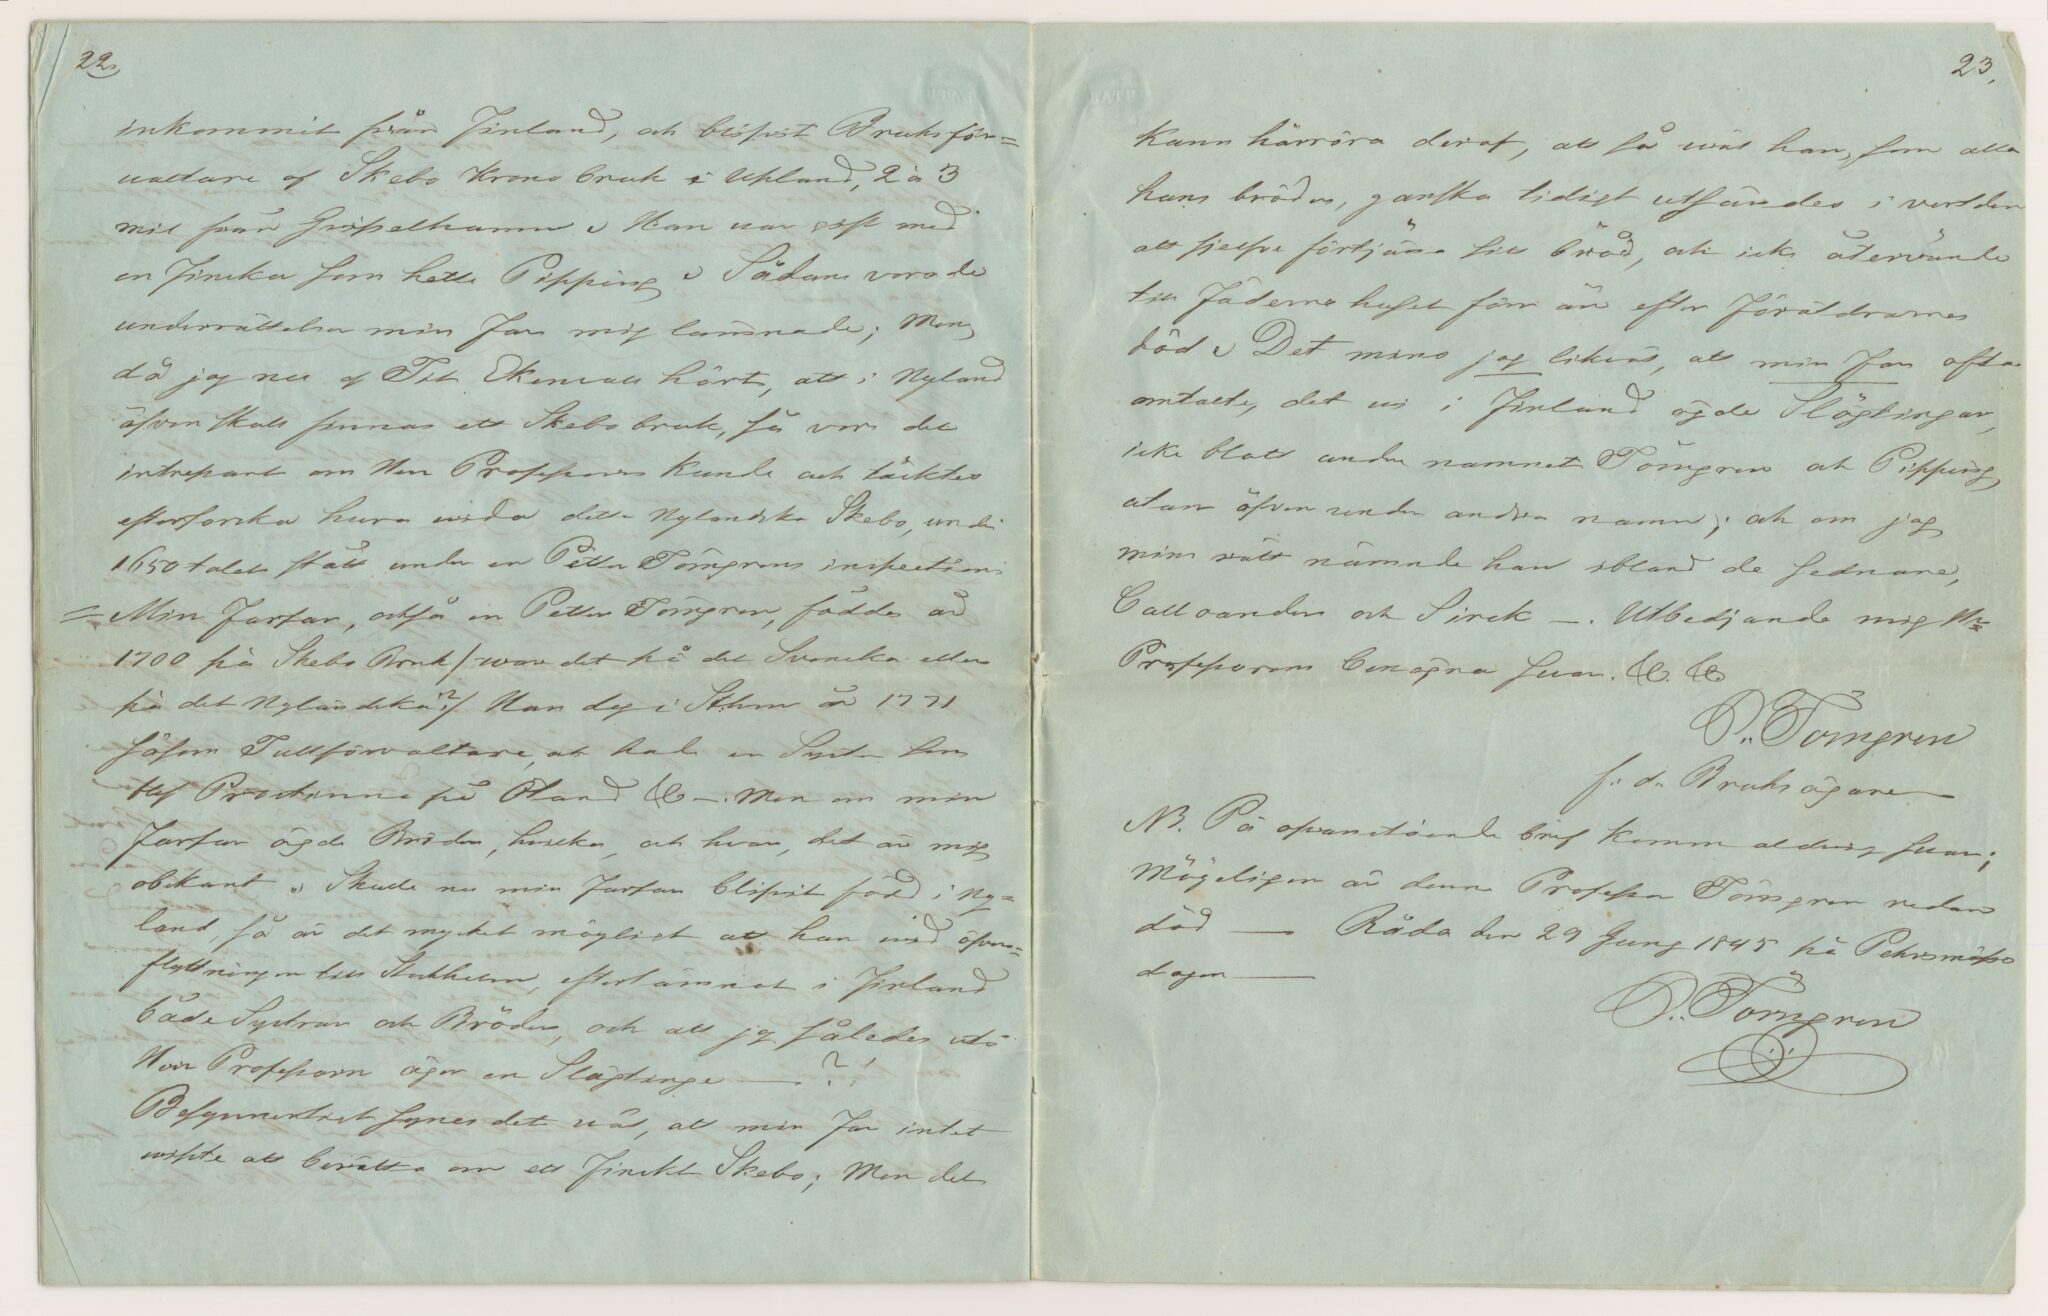 22,
inkommit från Finland, och blifvit Bruksför=
valtare af Skebo Krono bruk i Upland, 2 à 3
mil från Grisselhamn. Han var gift med
en Finska som hette Pipping. Sådane voro de
underrättelser min Far mig lämnade; Men,
då jag nu af Tit Ekenvall hört, att i Nyland
äfven skall finnas ett Skebo bruk, så vore det
intressant om Herr Professoren kunde och täcktes
efterforska huru wida detta Nylandska Skebo, under
1650 talet stått under en Petter Törngrens inspection.
= Min Farfar, också en Petter Törngren, föddes år
1700 på Skebo Bruk / war det på det Svenska eller
på det Nyländska?/ Han dog i Sthm år 1771
såsom Tullförvaltare, och hade en Syster som
blef Prostinna på Åland &c —. Men om min
Farfar ägde Bröder, huilka, och huar, det är mig
obekant. Skulle nu min Farfar blifvit född i Ny=
land, så är det mycket möjligt att han wid öfver=
flyttningen till Stockholm, efterlämnat i Finland
både Systrar och Bröder, och att jag således uti
Herr Professorn äger en Slägtinge — ?!
Besynnerligt synes det wäl, att min Far intet
wisste att berätta om ett Finskt Skebo; Men det
23,
kann härröra deraf, att så wäl han, som alla
hans bröder, ganska tidigt utsändes i verlden
att sjelfve förtjäna sitt bröd, och icke återwände
till Fäderne huset förr än efter Föräldrarnes
död. Det mins jag likväl, att min Far ofta
omtalte, det wi i Finland ägde Slägtingar,
icke blott under namnet Törngren och Pipping,
utan äfven under andra namn; och om jag
mins rätt nämnde han ibland de sednare,
Calloander och Sirek —. Utbedjande mig Hr
Professorens benägna svar. &c. &c
P. Törngren
f. d. Bruksägare
NB. På ofvanstående bref komm aldrig svar;
Möjeligen är denne Professor Törngren redan
död — Råda den 29 Juny 1845 på Pehrsmässo
dagen —
P. Törngren